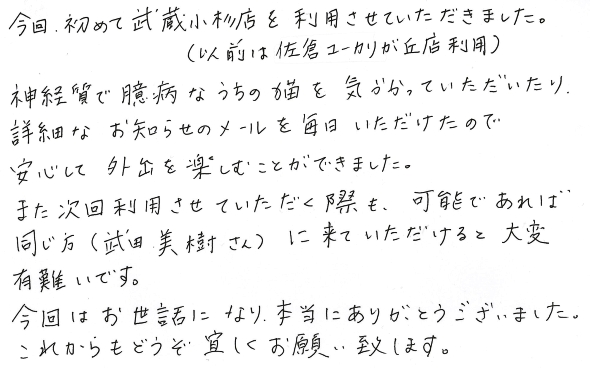 今回、初めて武蔵小杉店を利用させていただきました。
(以前は佐倉ユーカリが丘店利用)
神経質で臆病なうちの猫を気づかっていただいたり、
詳細なお知らせのメールを毎日いただけたので
安心して外出を楽しむことができました。
また次回利用させていただく際も、可能であれば
同じ方(武田美樹さん)に来ていただけると大変
有難いです。
今回はお世話になり、本当にありがとうございました。
これからもどうぞ宜しくお願い致します。